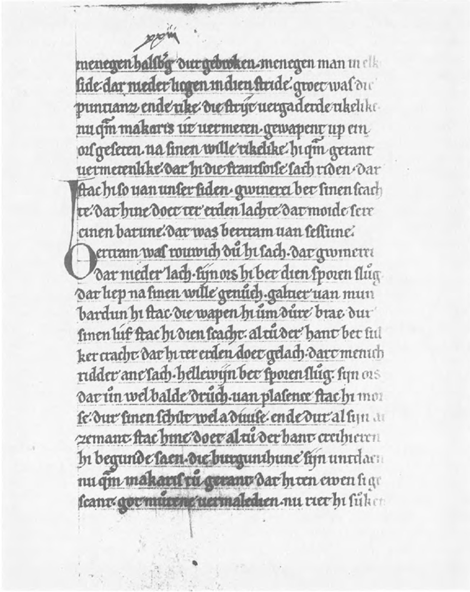 xxiii
menegen halsberg durgebroken · menegen man in elk
side · dar nieder ligen in dien stride · groet was die
puntianz · ende rike · die strijt vergaderde rikelike ·
nu qam makaris ut vermeten · gewapent up ein
ors geseten · na sinen wille rikelike · hi qam gerant
vermetenlike · dar hi die fransoise sach riden · dar
stac hi so van unser siden · gwineri bet sinen scach
te · dat hine doet ter erden lachte · dat moide sere
einen batune · dat was bertram van sessune ·
Bertram was rouwich du hi sach · dat gwineri
dar nieder lach · sijn ors hi bet dien sporen slug
dat liep na sinen wille genuch · galtier van mun
bardun hi stac · die wapen hi um dure brac · dur
sinen lijf stac hi dien scacht · al tu der hant bet sul
ker cracht · dat hi ter erden doet gelach · dart menich
ridder ane sach · hellewijn bet sporen slug · sijn ors
dat un wel balde druch · van plasence stac hi mor
se · dur sinen schilt wel a divise · ende dur al sijn
zemant stac hine doet al tu der hant · creihieren
hi begunde saen · die burgunihune sijn untdaen
nu qam makaris tu gerant · dat hi ten ewen sige
seant · got mutene vermaledien · nu riet hi suken